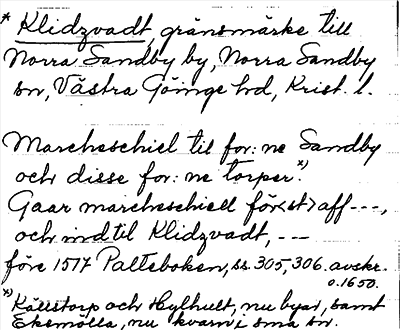 * Klidzvadt, gränsmärke till
Norra Sandby by, Norra Sandby
sn, Västra Göinge hd, Krist. l.
Marcheschiel til for: ne Sandby
och disse for: ne torper *).
Gaar marcheschiell för<st> aff ---,
och ind til Klidzvadt, ---
före 1517 Palteboken, ss. 305, 306. avskr.
o. 1650.
*) Källstorp och Hylhult, nu byar, samt
Eksmölla, nu kvarn i sma sn.